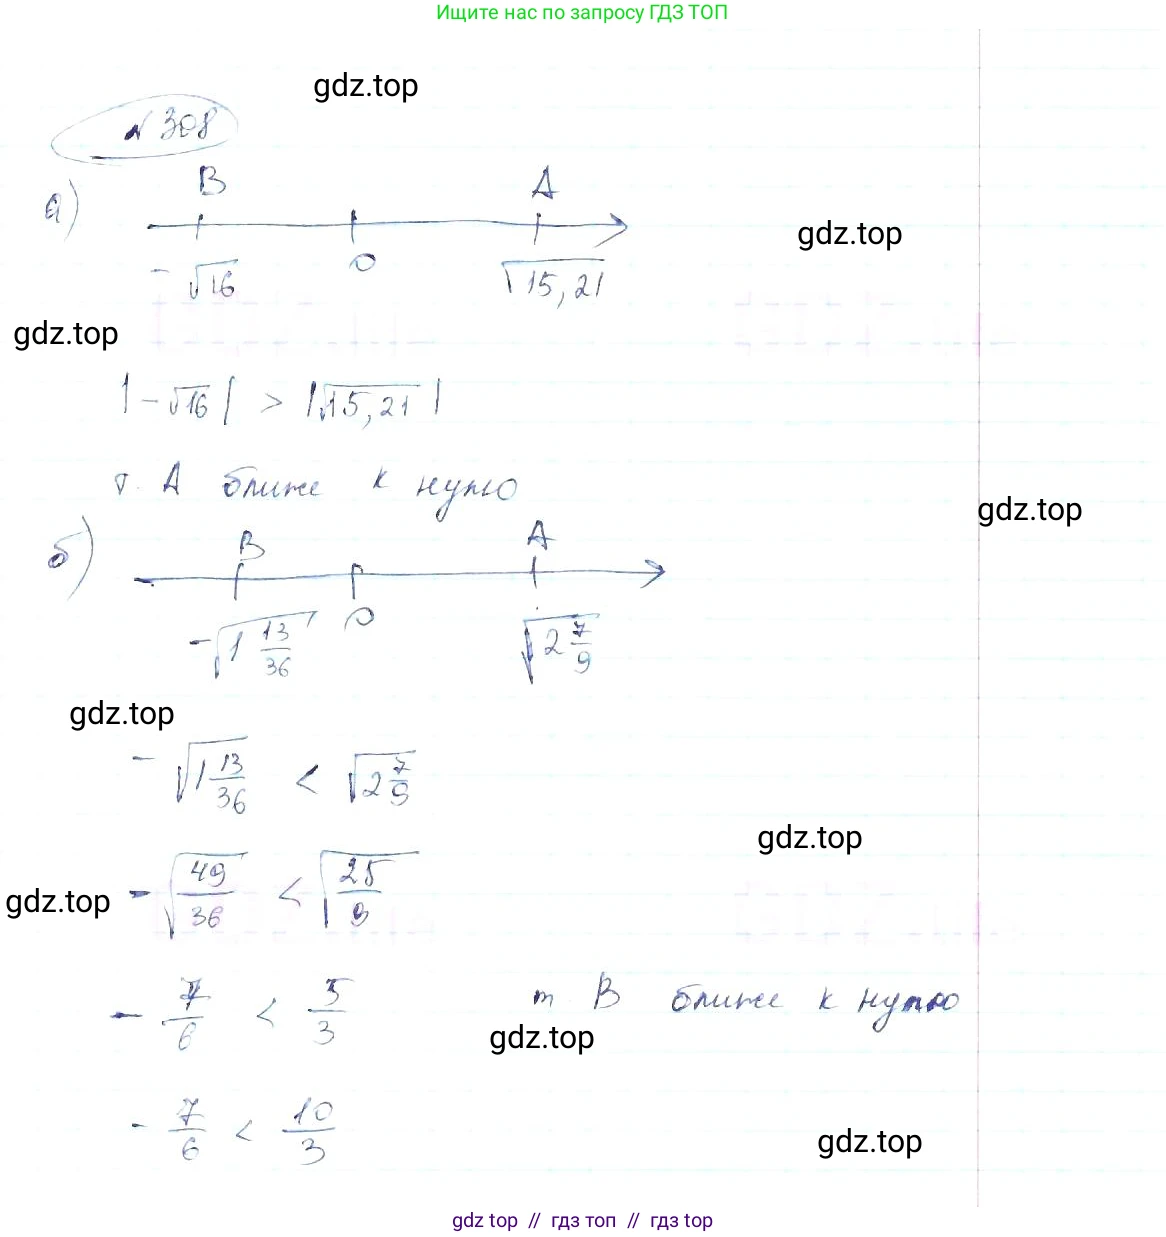 Ищите нас по запросу ГДЗ ТОП
gdz.top
№ 308
а)
B A
gdz.top
-√16 0 √15,21
gdz.top
|-√16| > |√15,21|
т. A ближе к нулю
gdz.top
б)
B A
-√1 13/36 0 √2 7/9
gdz.top
-√1 13/36 < √2 7/9
gdz.top
-√49/36 < √25/9
gdz.top
-7/6 < 5/3 т. B ближе к нулю
gdz.top
-7/6 < 10/3
gdz.top
gdz top // гдз топ // gdz top